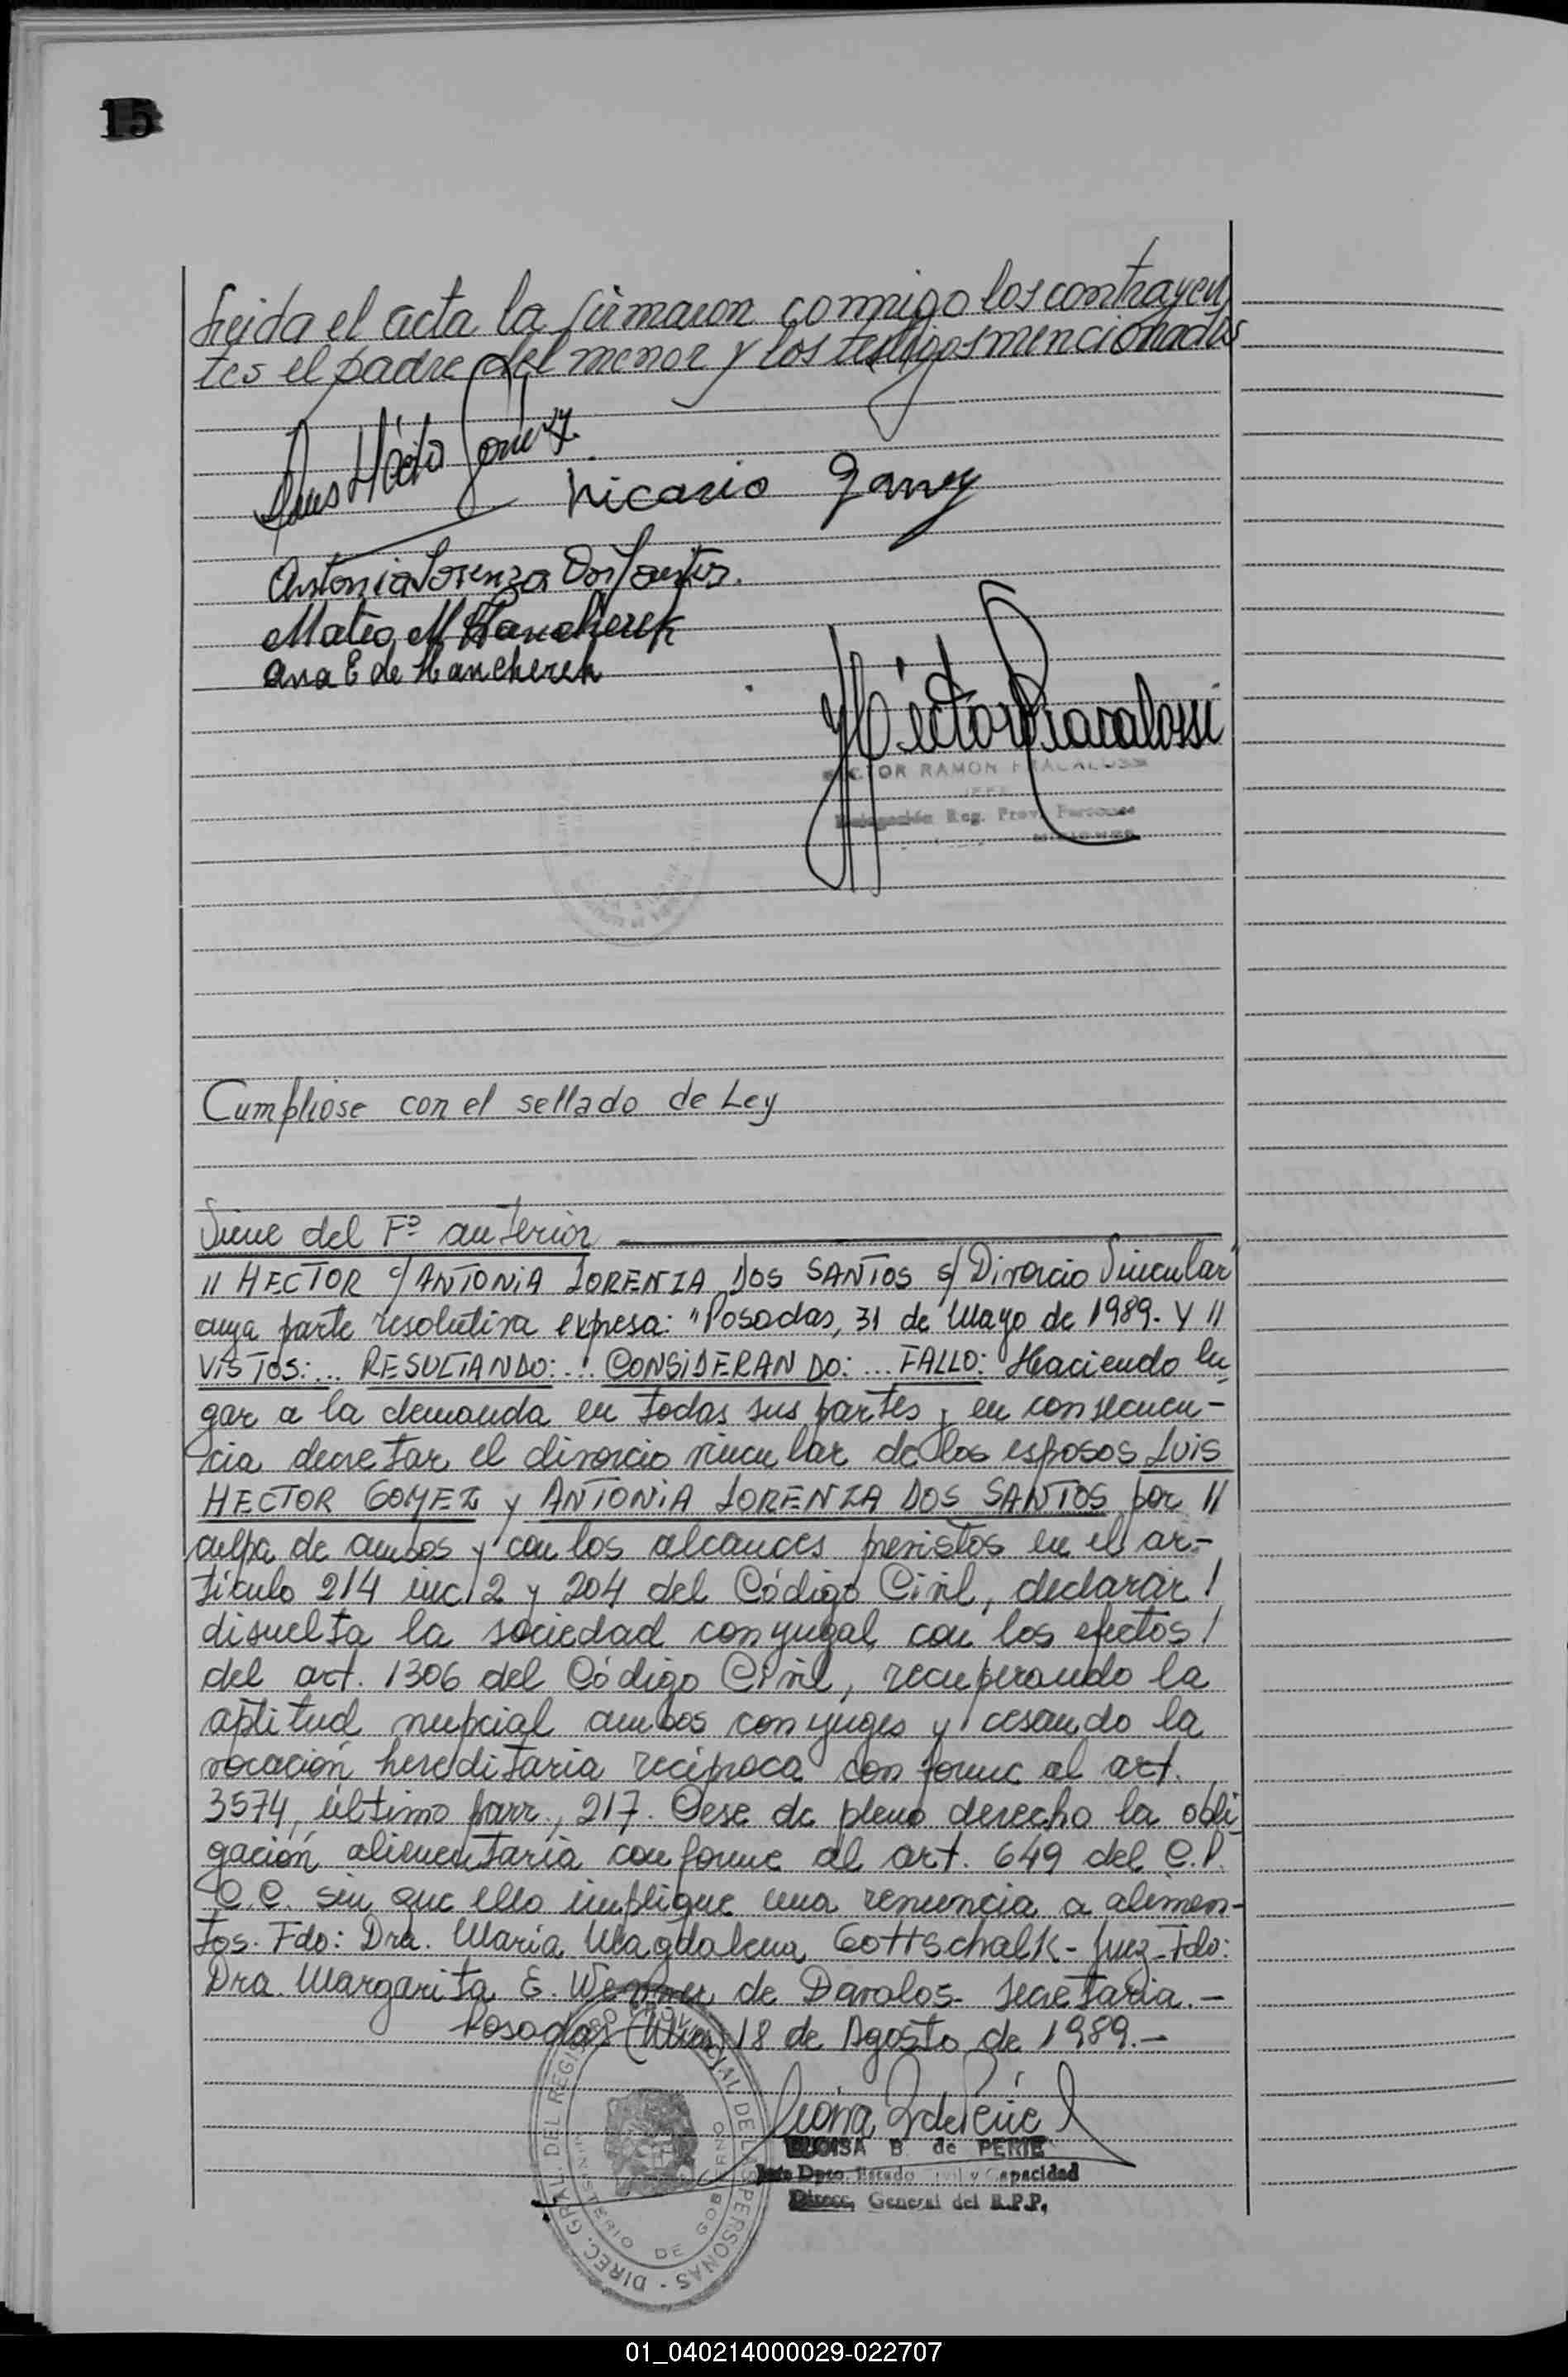 15
Leida el acta la firmaron conmigo los contrayen
tes el padre del menor y los testigos mencionados
Luis Héctor Gomez
Nicasio
Antonia Lorenza Dos Santos.
Mateo M Hancherek
Ana E de Hancherek
Héctor Fracalossi
HECTOR RAMON FRACALOSSI
JEFE
Delegación Reg. Prov. Personas
MISIONES
Cumpliose con el sellado de Ley
Viene del Fº anterior
// HECTOR c/ ANTONIA LORENZA DOS SANTOS s/ Divorcio Vincular"
cuya parte resolutiva expresa: "Posadas, 31 de Mayo de 1989. Y //
VISTOS:... RESULTANDO:... CONSIDERANDO:... FALLO: Haciendo lu
gar a la demanda en todas sus partes y en consecuen-
cia decretar el divorcio vincular de los esposos LUIS
HECTOR GOMEZ y ANTONIA LORENZA DOS SANTOS por //
culpa de ambos y con los alcances previstos en el ar-
tículo 214 inc. 2 y 204 del Código Civil, declarar /
disuelta la sociedad conyugal con los efectos /
del art. 1306 del Código Civil, recuperando la
aptitud nupcial ambos conyuges y cesando la
vocación hereditaria recíproca conforme al art.
3574, último parr., 217. Cese de pleno derecho la obli
gación alimentaria conforme al art. 649 del C.P.
C.C. sin que ello implique una renuncia a alimen-
tos. Fdo: Dra. María Magdalena Gottschalk - Juez - Fdo:
Dra. Margarita E. de Davalos - Secretaria.-
Posadas (Mnes) 18 de Agosto de 1989.-
ELOISA B. de PERIE
Jefe Dpto. Estado Civil y Capacidad
Direcc. General del R.P.P.
DIREC. GRAL. DEL REGISTRO PROVINCIAL DE LAS PERSONAS
MINISTERIO DE GOBIERNO
01_040214000029-022707